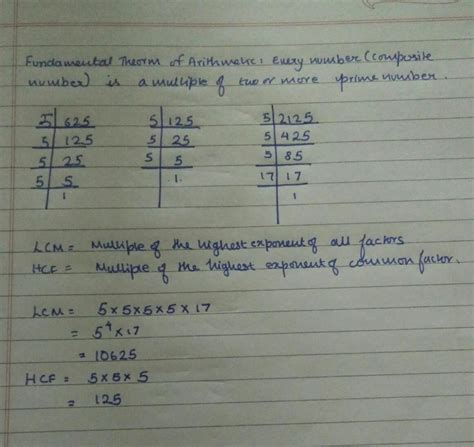 Fundamental Theorm of Arithmetic: Every number (composite
number) is a multiple of two or more prime number.
5 | 625   5 | 125   5 | 2125
5 | 125   5 | 25   5 | 425
5 | 25   5 | 5   5 | 85
5 | 5   1   17 | 17
1   1
LCM = Multiple of the highest exponent of all factors
HCF = Multiple of the highest exponent of common factor.
LCM = 5×5×5×5×17
= 5⁴×17
= 10625
HCF = 5×5×5
= 125